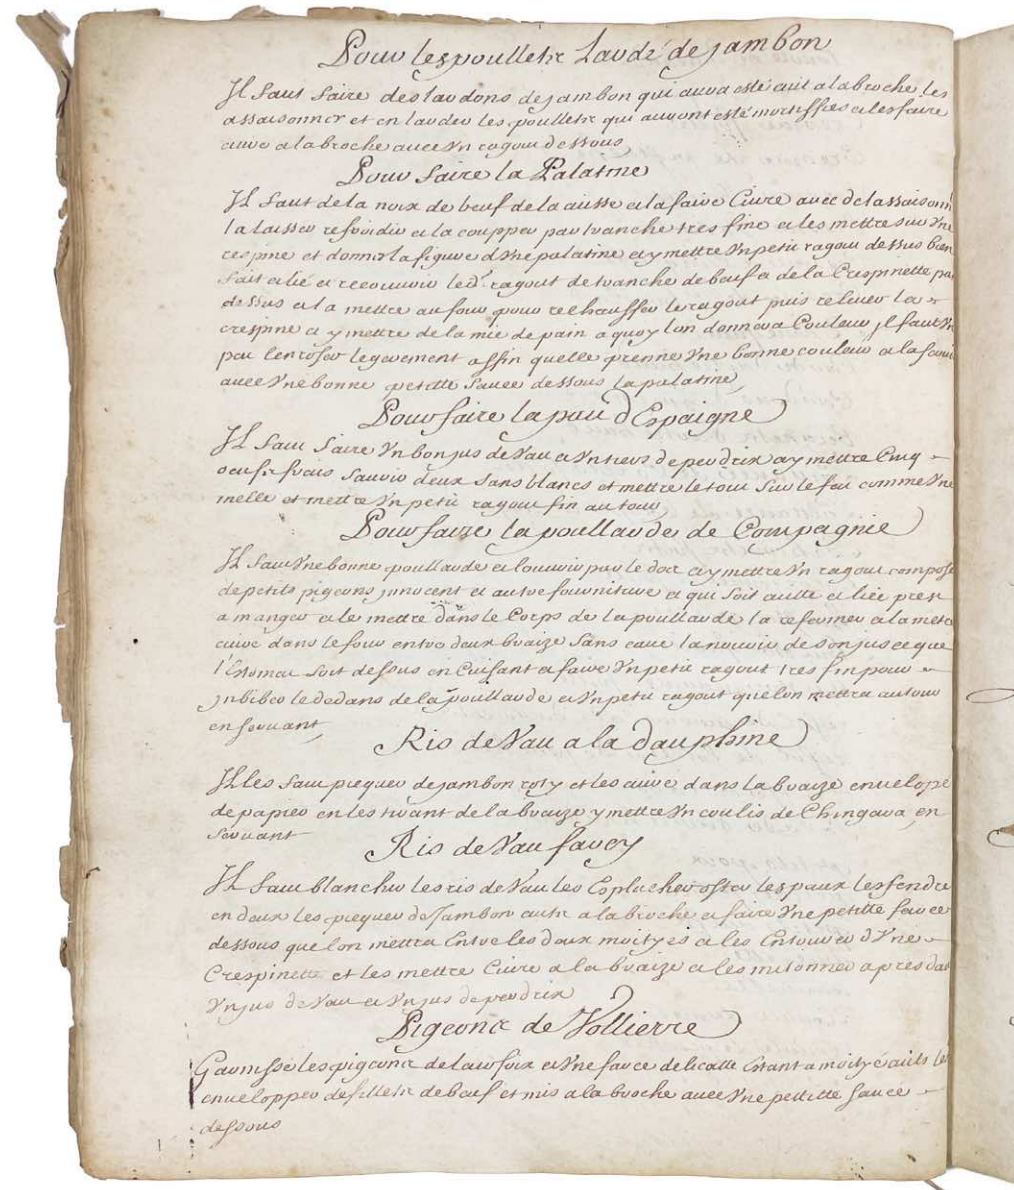 Pour les poullets Lardé de jambon
Il faut faire des lardons de jambon qui aura esté cuit a la broche les
assaisonner et en larder les poullets qui auront esté mortiffies et les faire
cuire a la broche avec Vn ragou dessous
Pour faire la Palatine
Il faut de la noix de beuf de la cuisse et la faire Cuire avec de lassaisonn
la laisser refroidir et la coupper par tranche tres fine et les mettre sur Vne
crespine et donner la figure dVne palatine et y mettre Vn petit ragou dessus bien
fait et lié et recouvrir led. ragout de tranche de beuf et de la Crespinette par
dessus et la mettre au four pour rechauffer le ragout puis relever la
crespine et y mettre de la mie de pain a quoy lon donnera Couleur jl faut Vn
peu lenroser legerement affin quelle prenne Vne bonne couleur et la servir
avec Vne bonne petitte sauce dessous la palatine
Pour faire la pau d'Espaigne
Il faut faire Vn bon jus de Vau et Vn tiers de perdrix et y mettre Cinq
oeufs frais savoir deux sans blancs et mettre le tout sur le feu comme Vne
melle et mettre Vn petit ragou fin autour
Pour faire la poullarde de Compagnie
Il faut Vne bonne poullarde et louvrir par le dos et y mettre Vn ragou composé
de petits pigeons jnnocent et autre fourniture et qui soit cuitte et liée prest
a manger et le mettre dans le Corps de la poullarde la refermer et la mettre
cuire dans le four entre deux braize sans eaue la nourir de son jus et que
l'Estomac soit dessus en Cuisant et faire Vn petit ragout tres fin pour
jnbiber le dedans de la poullarde et Vn petit ragout que lon mettra autour
en servant
Ris de Vau a la dauphine
Il les faut piequer de jambon roty et les cuire dans la braize envelopé
de papier en les tirant de la braize y mettre Vn coulis de Chingara en
servant
Ris de Vau farcy
Il faut blanchir les ris de Vau les Esplucher oster les paux les fendre
en deux les piequer de Jambon cuit a la broche et faire Vne petitte farce
dessous que lon mettra Entre les deux moityes et les Entourer dVne
Crespinette et les mettre Cuire a la braize et les mitonner apres dans
Vn jus de Vau et Vn jus de perdrix
Pigeons de Vollierre
Garnisse les pigeons de leur foix et Vne farce delicatte Estant a moityé cuits les
envelopper de fillets de beuf et mis a la broche avec Vne petitte sauce
dessous